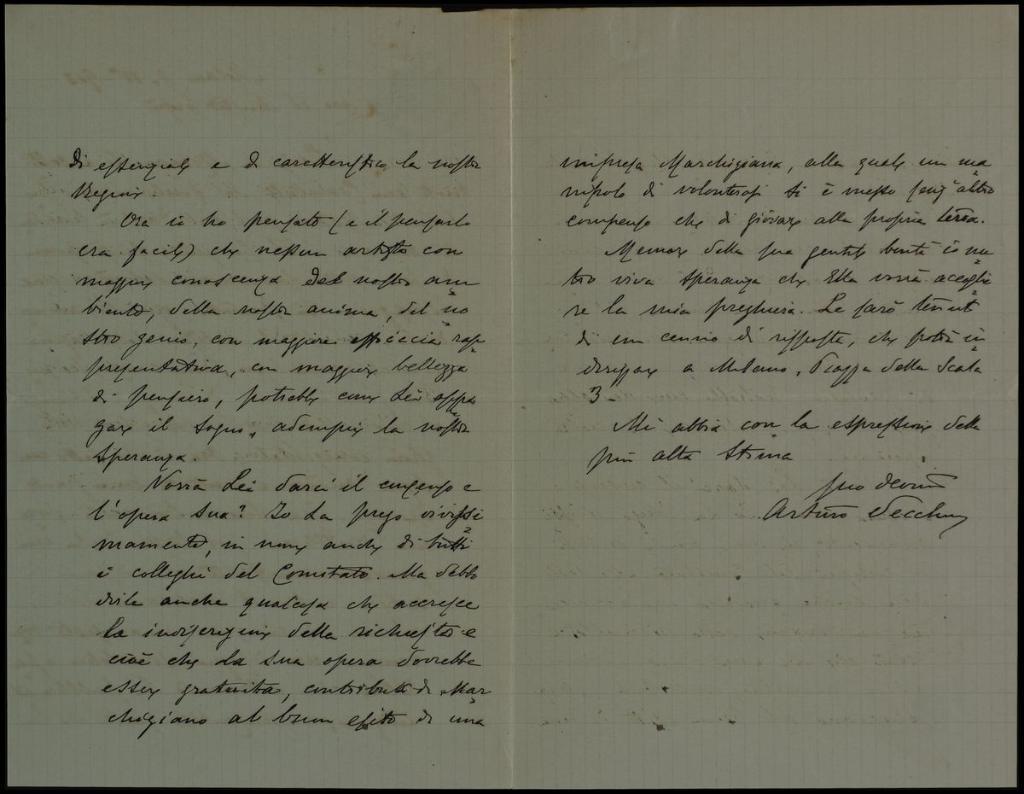 di essenziale e di caratteristico la nostra
Regione.
Ora io ho pensato (e il pensarlo
era facile) che nessun artista con
maggiore conoscenza del nostro am
biente, della nostra anima, del no
stro genio, con maggiore efficacia rap
presentativa, con maggiore bellezza
di pensiero, potrebbe come Lei appa
gare il sogno, adempiere la nostra
speranza.
Vorrà Lei darci il consenso e
l'opera sua? Io La prego vivissi
mamente, in nome anche di tutti
i colleghi del Comitato. Ma debbo
dirle anche qualcosa che accresce
la indiscrezione della richiesta e
cioè che la sua opera dovrebbe
essere gratuita, contributo di Mar
chigiano al buon esito di una
impresa Marchigiana, alla quale un ma
nipolo di volonterosi si è messo senz'altro
compenso che di giovare alla propria terra.
Memore della sua gentile bontà io nu
tro viva speranza che Ella vorrà accoglie
re la mia preghiera. Le sarò tenuto
di un cenno di risposta, che potrà in
dirizzare a Milano, Piazza della Scala
3
Mi abbia con la espressione della
più alta stima
suo devmo
Arturo Vecchini